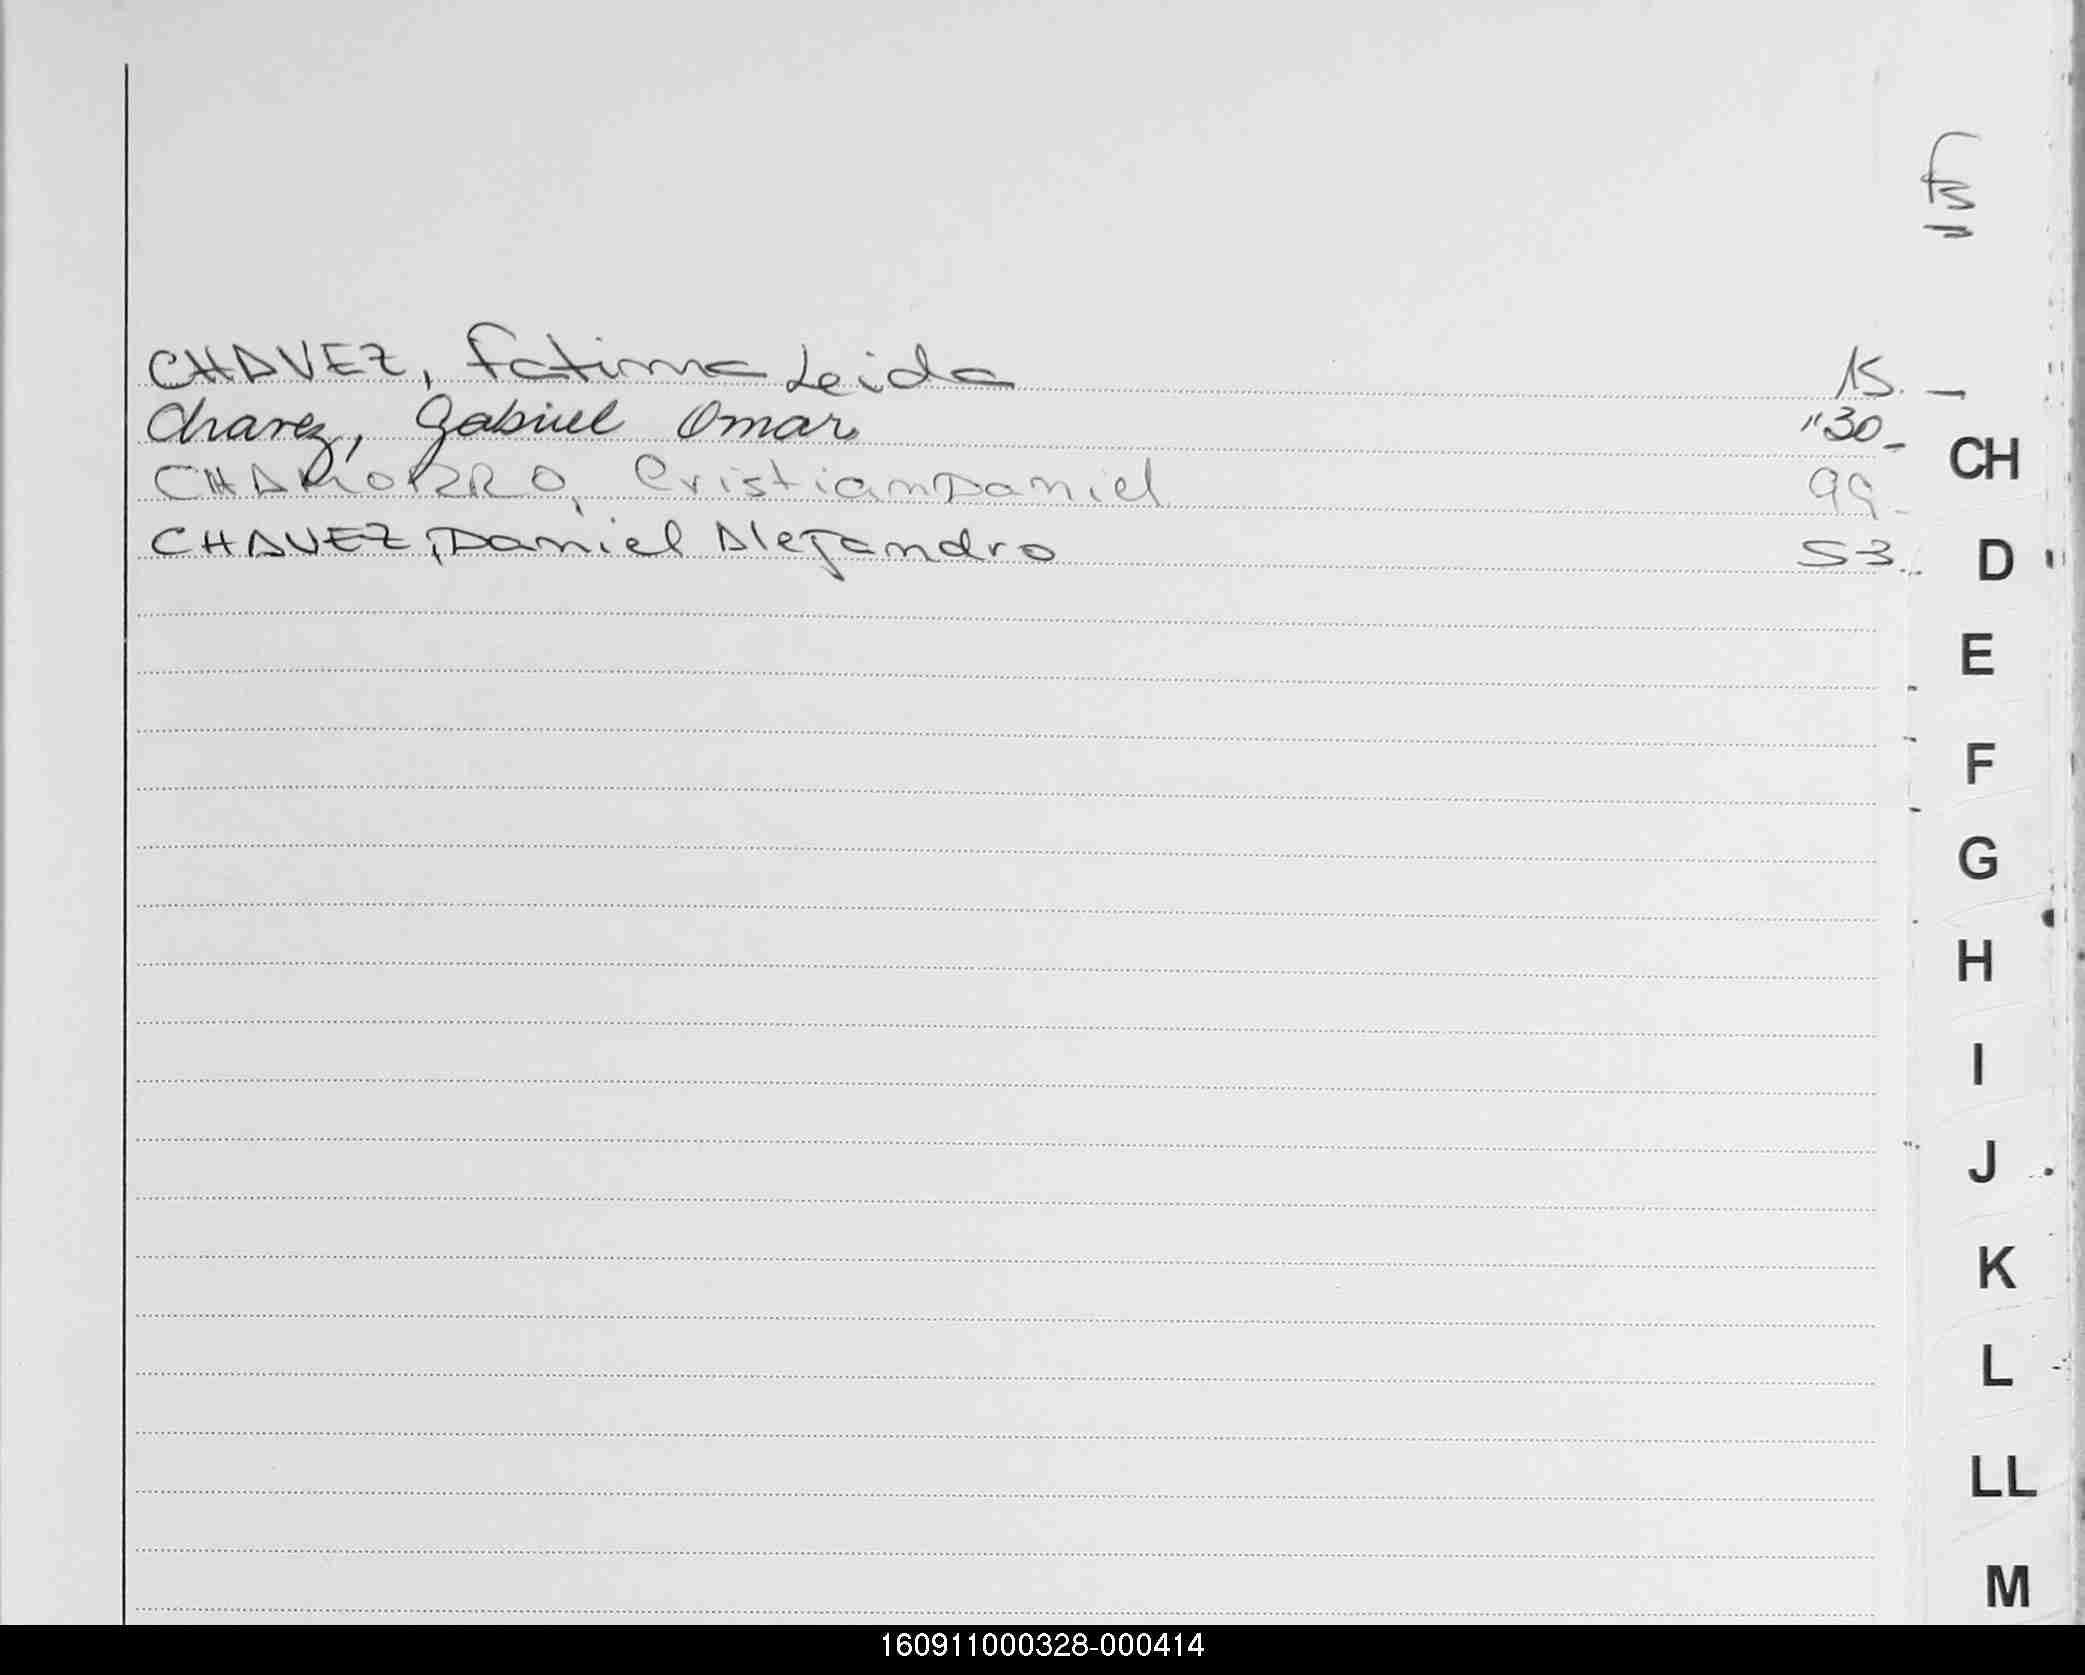 Fs
CHAVEZ, Fatima Leida 15. —
Chavez, Gabriel Omar "30-
Cristian Daniel 99-
CHAVEZ, Daniel Alejandro 53.
CH
D
E
F
G
H
I
J
K
L
LL
M
160911000328-000414